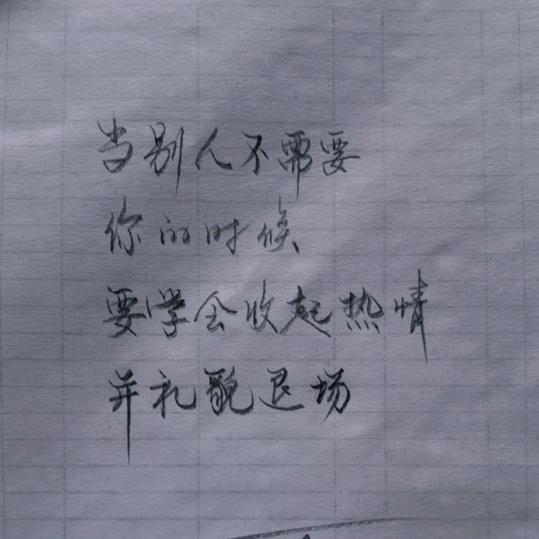 当别人不需要
你的时候
要学会收起热情
并礼貌退场